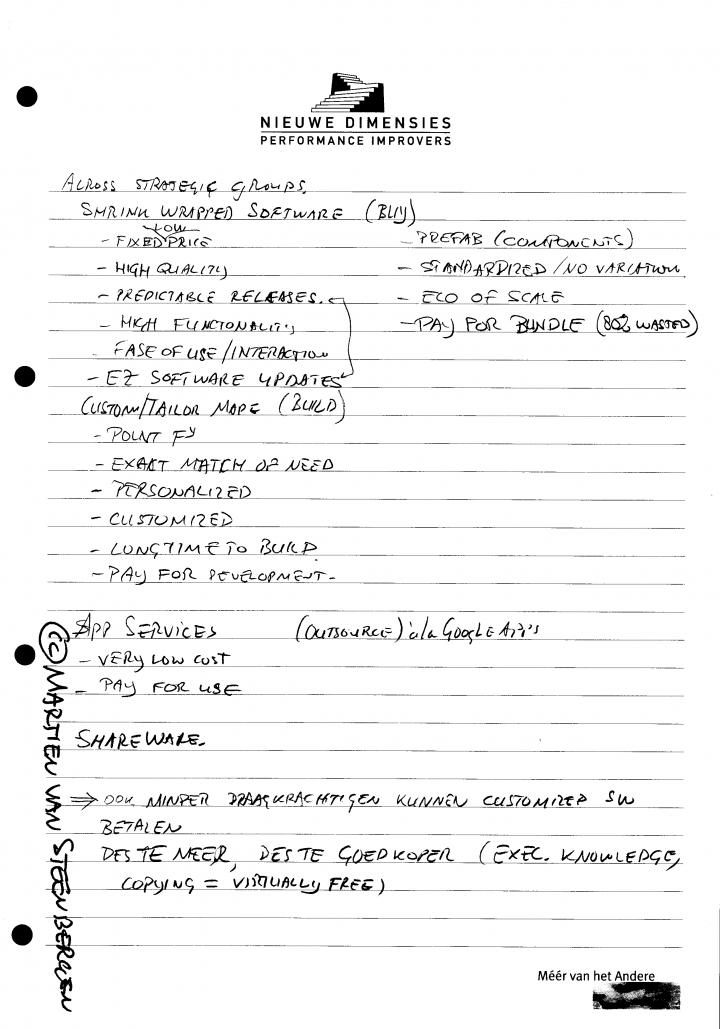 NIEUWE DIMENSIES
PERFORMANCE IMPROVERS
ACROSS STRATEGIC GROUPS.
SHRINK WRAPPED SOFTWARE (BUY)
LOW
- FIXED PRICE
- PREFAB (COMPONENTS)
- HIGH QUALITY
- STANDARDIZED / NO VARIATION
- PREDICTABLE RELEASES.
- ECO OF SCALE
- HIGH FUNCTONALITY
- PAY FOR BUNDLE (80% WASTED)
- EASE OF USE / INTERACTION
- EZ SOFTWARE UPDATES
CUSTOM/TAILOR MADE (BUILD)
- POINT FY
- EXACT MATCH OF NEED
- PERSONALIZED
- CUSTOMIZED
- LONG TIME TO BUILD
- PAY FOR DEVELOPMENT-
APP SERVICES (OUTSOURCE) à la GOOGLE APP'S
- VERY LOW COST
- PAY FOR USE
SHAREWARE.
⇒ OOK MINDER DRAAGKRACHTIGEN KUNNEN CUSTOMIZED SW
BETALEN
DES TE MEER, DES TE GOEDKOPER (EXEC. KNOWLEDGE,
COPYING = VIRTUALLY FREE)
(CC) MARTIEN VAN STEENBERGEN
Méér van het Andere